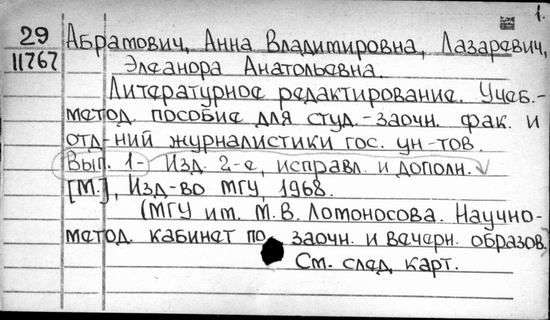 1.
29 Абрамович, Анна Владимировна, Лазаревич,
11767 Элеанора Анатольевна.
Литературное редактирование. Учеб.-
метод. пособие для студ.-заочн. фак. и
отд-ний журналистики гос. ун-тов.
Вып. 1- Изд. 2-е, исправл. и дополн.
[М.], Изд-во МГУ, 1968.
(МГУ им. М.В. Ломоносова. Научно-
метод. кабинет по заочн. и вечерн. образов.)
См. след. карт.